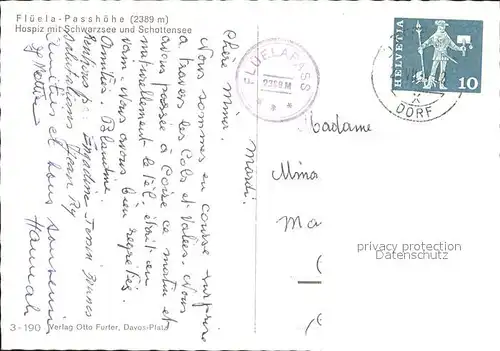 Flüela-Passhöhe (2389 m)
Hospiz mit Schwarzsee und Schottensee
FLÜELAPASS
2389 M
HELVETIA
10
DORF
Mardi.
Chère Mina.
Nous sommes en course surprise
à travers les Cols et Vallées. Nous
avons passé à Coire ce matin et
naturellement le tél. était en
vain. Nous avons bien regretté.
Amitiés. Blandine.
Bonjours
salutations Jean
Amitiés et bons souvenirs
Hannah
Madame
Mina
Ma
privacy protection
Datenschutz
3-190 Verlag Otto Furter, Davos-Platz